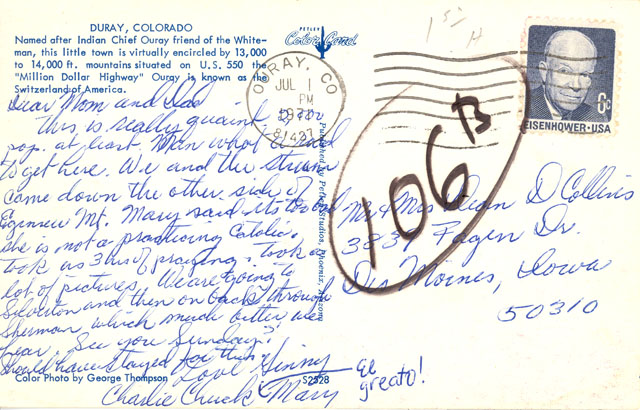 DURAY, COLORADO
Named after Indian Chief Ouray friend of the White-
man, this little town is virtually encircled by 13,000
to 14,000 ft. mountains situated on U.S. 550 the
"Million Dollar Highway" Ouray is known as the
Switzerland of America.
Dear Mom and Dad -
This is really quaint
pop. at least. Man what a road
to get here. We and the stream
came down the other side of
Engineer Mt. Mary said its too bad
she is not a practicing Catolic.
Took us 3 hrs of praying. Took a
lot of pictures. We are going to
Silverton and then on back through
Sherman, which much better we
hear. See you Sunday?
Should have stayed for this.
Love Ginny
Charlie Chuck Mary
El
greato!
Color Photo by George Thompson
S2528
PETLEY
Color Card
Published by Petley Studios, Phoenix, Arizona
OURAY, CO
JUL 1
PM
1977
81427
1st
H
6c
EISENHOWER·USA
106 B
Mr & Mrs Dean D Collins
3839 Fagen Dr.
Des Moines, Iowa
50310